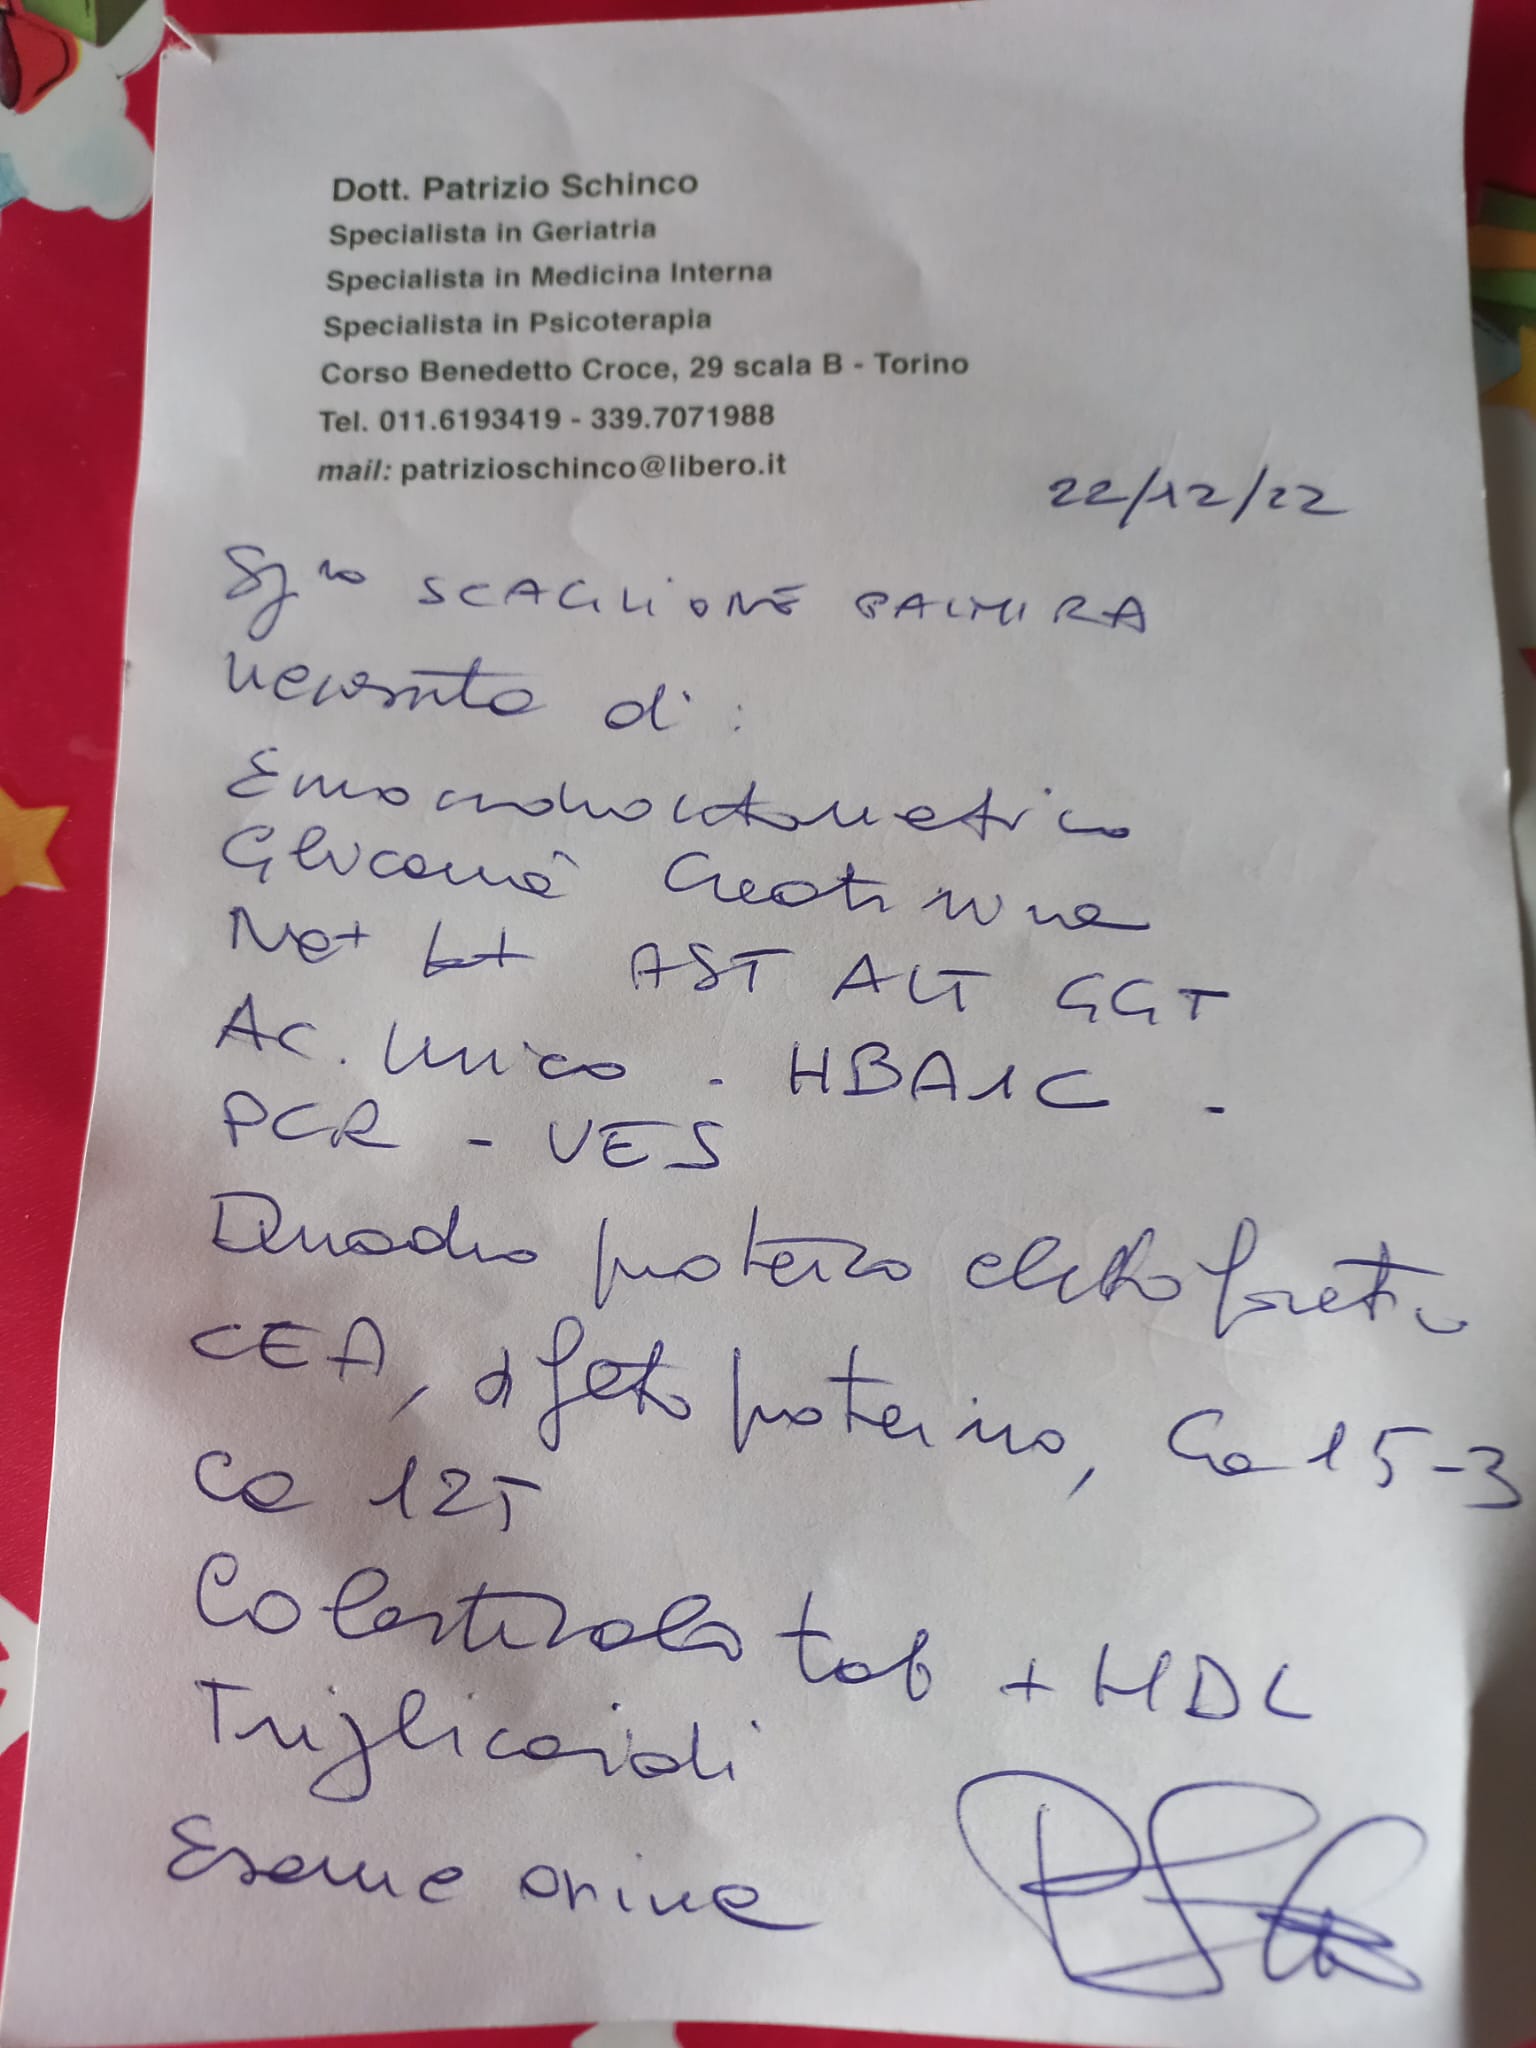 Dott. Patrizio Schinco
Specialista in Geriatria
Specialista in Medicina Interna
Specialista in Psicoterapia
Corso Benedetto Croce, 29 scala B - Torino
Tel. 011.6193419 - 339.7071988
mail: patrizioschinco@libero.it
22/12/22
Sig.ra SCAGLIONE PALMIRA
necessita di:
Emocromocitometrico
Glicemia Creatinina
Na+ K+ AST ALT GGT
Ac. Urico - HBA1C -
PCR - VES
Quadro proteico elettroforetico
CEA, α feto proteina, Ca 15-3
Ca 125
Colesterolo tot + HDL
Trigliceridi
Esame urine